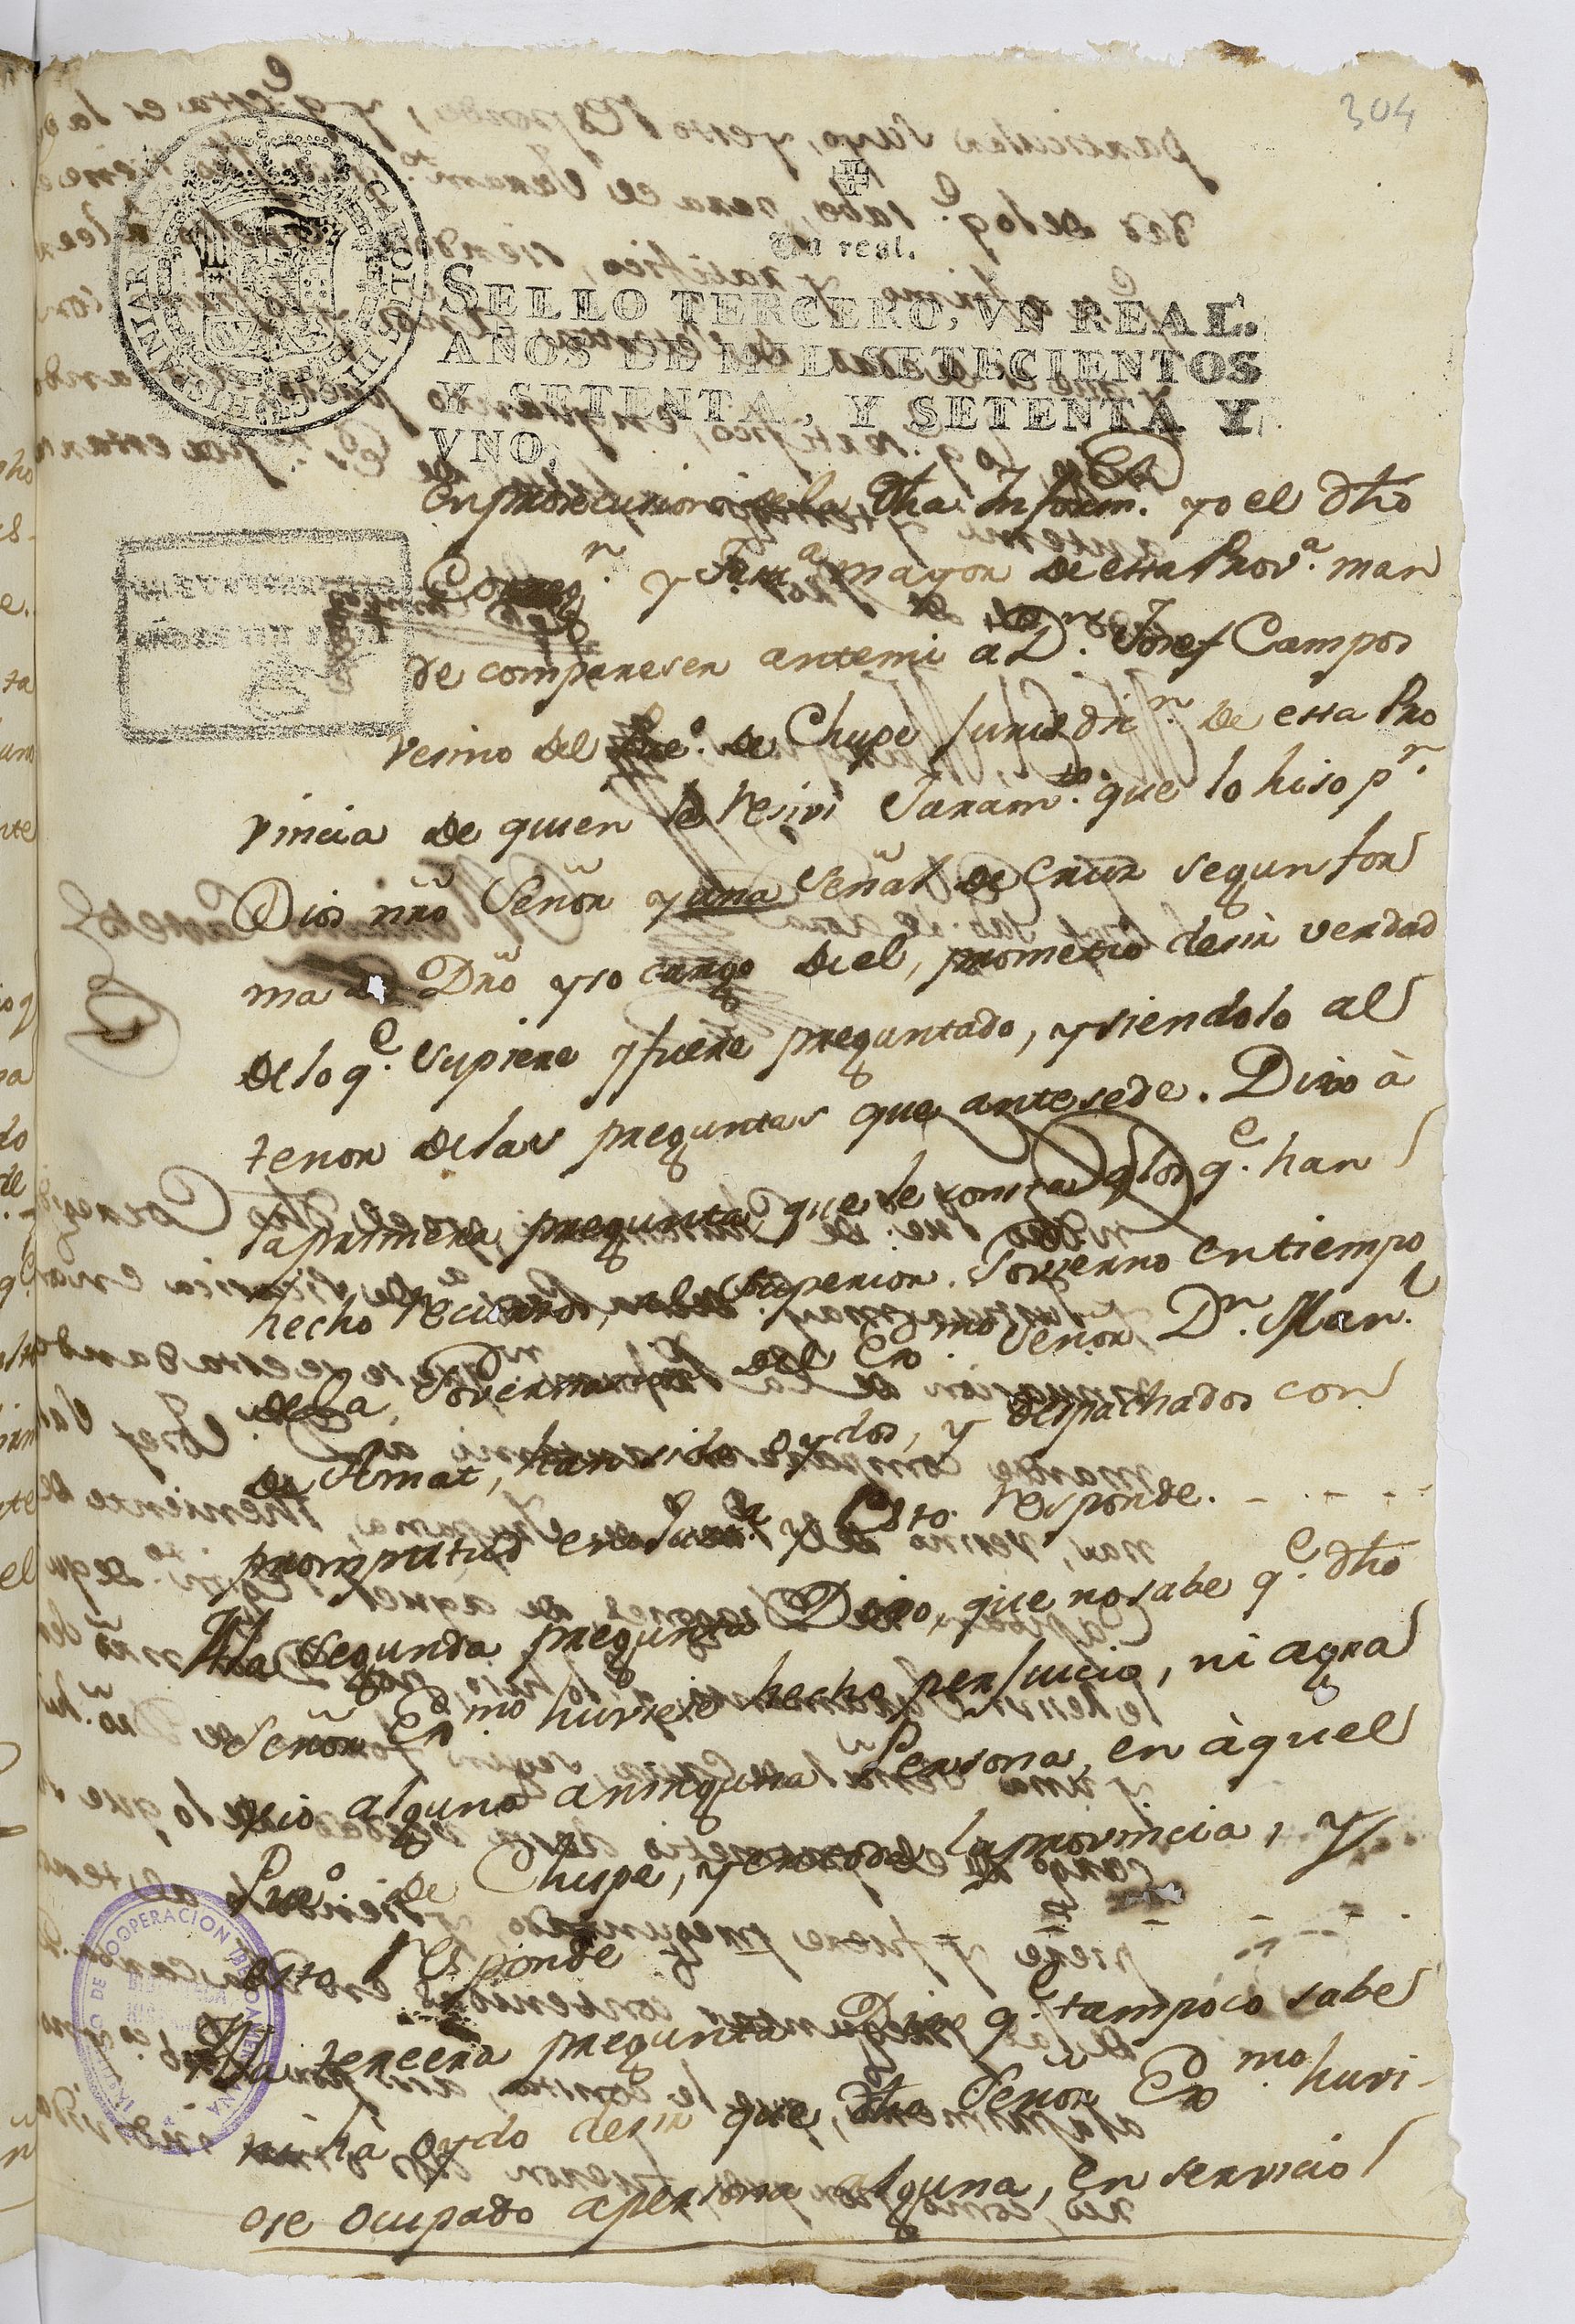 304
Un real.
SELLO TERCERO, VN REAL.
AÑOS DE MIL SETECIENTOS
Y SETENTA, Y SETENTA Y
VNO.
En prosecucion de la dha Inform.ⁿ yo el dho
Correg.ʳ y Just.ᵃ mayor de esta Prov.ᵃ man
de compareser ante mi a D.ⁿ Josef Campos
vesino del Pue.º de Chupe Jurisdic.ⁿ de esta Pro
vincia de quien le resivi Juram.ᵗᵒ que lo hiso p.ʳ
Dios nrõ Señor y una señal de cruz segun for
ma de Drõ y so cargo de el, prometio desir verdad
de lo q.ᵉ supiere y fuere preguntado, y siendolo al
tenor de las preguntas que antesede. Dixo à
la primera pregunta que le consta q los q.ᵉ han
hecho recursos, al Superior Govierno en tiempo
de la Governacion del Ex.ᵐᵒ Señor D.ⁿ Man.ˡ
de Amat, han sido oydos, y despachados con
promptitud y Esto responde. - - - - -
A la segunda pregunta Dixo, que no sabe q.ᵉ dho
Señor Ex.ᵐᵒ huviese hecho perjuicio, ni agra
vio alguno a ninguna Persona, en àquel
Pue.º de Chupe, y en toda la provincia, y
esto responde - - - -
A la tercera pregunta Dixo q.ᵉ tampoco sabe
ni ha oydo desir que, dho Señor Ex.ᵐᵒ huvi-
ese ocupado a persona alguna, en servicio